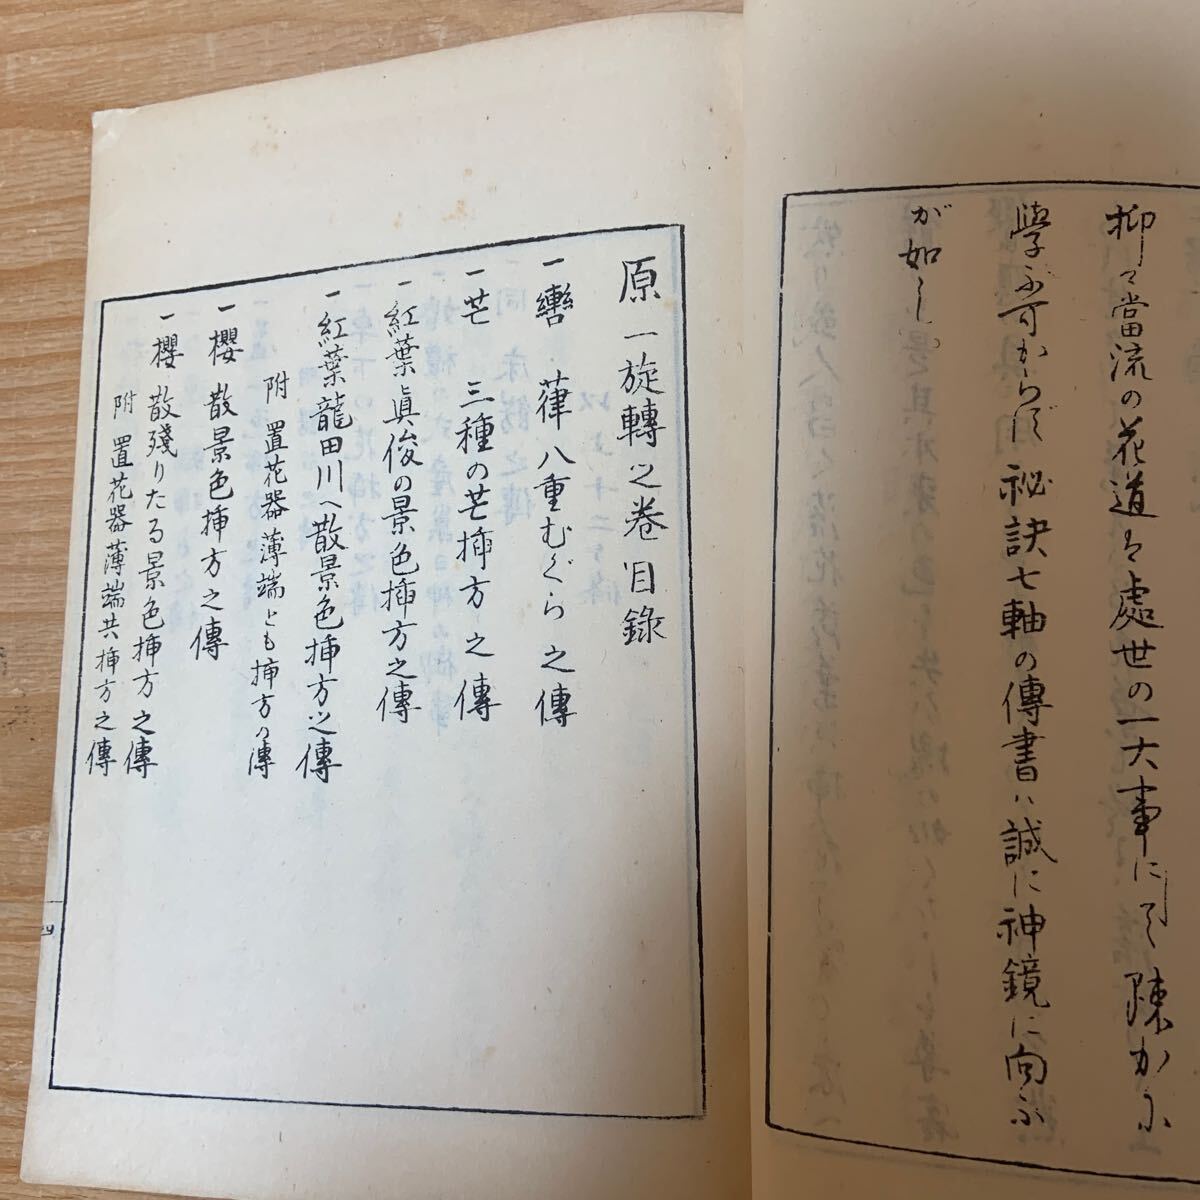 抑々當流の花道は處世の一大事にして疎かに
學ぶ可からず祕訣七軸の傳書ハ誠に神鏡に向ふ
が如し
原一旋轉之卷目錄
一轡 葎八重むぐら之傳
一芒 三種の芒揷方之傳
一紅葉眞俊の景色揷方之傳
一紅葉龍田川へ散景色揷方之傳
附 置花器薄端とも揷方の傳
一櫻 散景色揷方之傳
一櫻 散殘りたる景色揷方之傳
附 置花器薄端共揷方之傳